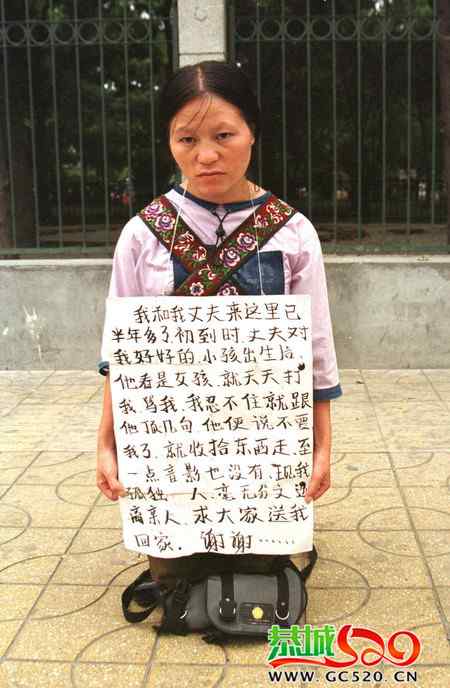 我和我丈夫来这里已
半年多了.初到时.丈夫对
我好好的.小孩出生后.
他看是女孩.就天天打
我.骂我.我忍不住就跟
他顶几句.他便说不要
我了.就收拾东西走.至
一点音影也没有.现我
孤独一人.毫无分文.远
离亲人.求大家送我
回家.谢谢……
恭城520
WWW.GC520.CN